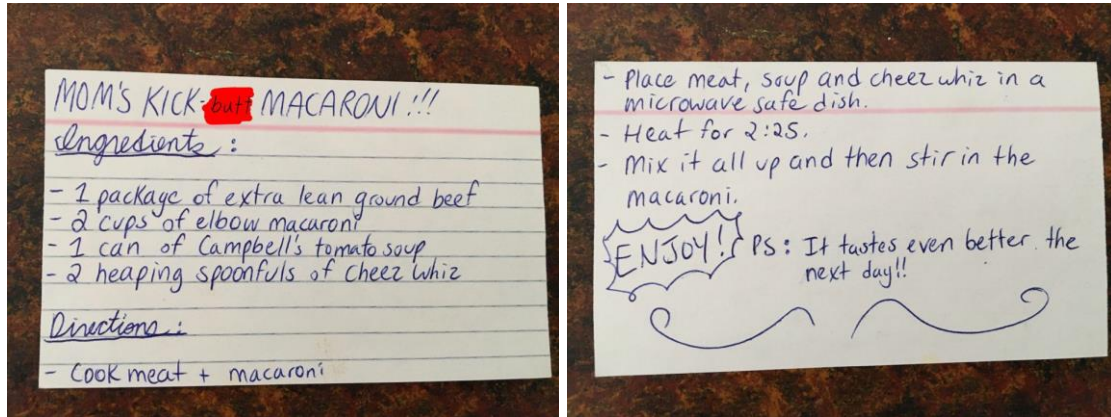 MOM'S KICK-butt MACARONI!!!
Ingredients:
- 1 package of extra lean ground beef
- 2 cups of elbow macaroni
- 1 can of Campbell's tomato soup
- 2 heaping spoonfuls of cheez whiz
Directions:
- Cook meat + macaroni
- Place meat, soup and cheez whiz in a
microwave safe dish.
- Heat for 2:25.
- Mix it all up and then stir in the
macaroni.
ENJOY! PS: It tastes even better the
next day!!